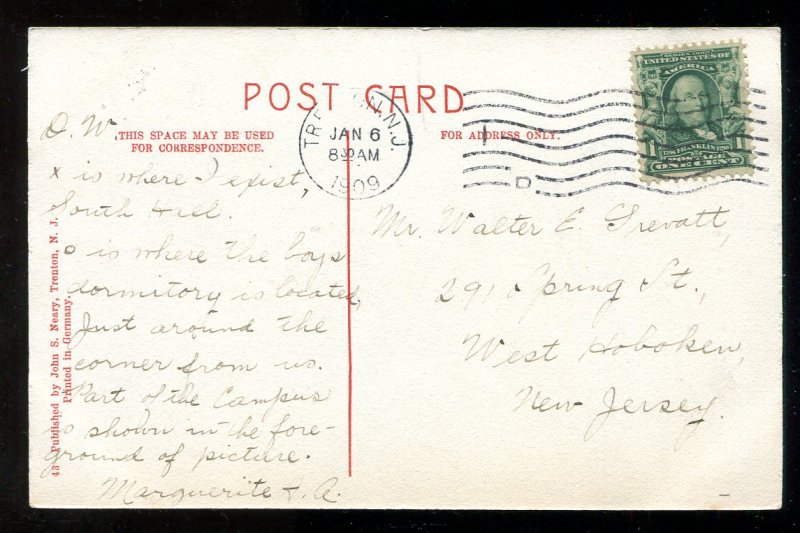 POST CARD
THIS SPACE MAY BE USED
FOR CORRESPONDENCE.
FOR ADDRESS ONLY.
TRENTON, N.J.
JAN 6
8 30 AM
1909
1
D
SERIES 1902
UNITED STATES OF
AMERICA
1706 FRANKLIN 1790
1 POSTAGE 1
ONE CENT
D. W.
x is where I exist,
South Hall.
o is where the boys
dormitory is located,
Just around the
corner from us.
Part of the Campus
is shown in the fore-
ground of picture.
Marguerite L. A.
Mr. Walter E. Trevatt,
291 Spring St.,
West Hoboken,
New Jersey.
43 Published by John S. Neary, Trenton, N. J.
Printed in Germany.